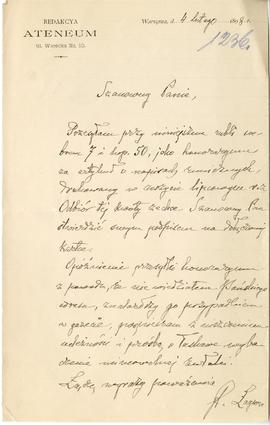 REDAKCYA
ATENEUM
ul. Warecka No. 10.
Warszawa, d. 4 lutego 1898 r.
1236.
Szanowny Panie,
Posyłam przy niniejszem rubli
7 i kop. 50, jako honoraryum
za artykuł o napisach runicznych,
drukowany w zeszycie lipcowym r. z.
Odbiór tej kwoty zechce Szanowny Pan
stwierdzić swym podpisem na dołączonej
kartce.
Opóźnienie przesyłki honoraryum
z powodu, że nie wiedziałem Pańskiego
adresu, znalazłszy go przypadkiem
w gazecie,
i proszę o łaskawe wyba-
czenie mimowolnej zwłoki.
Łączę wyrazy poważania